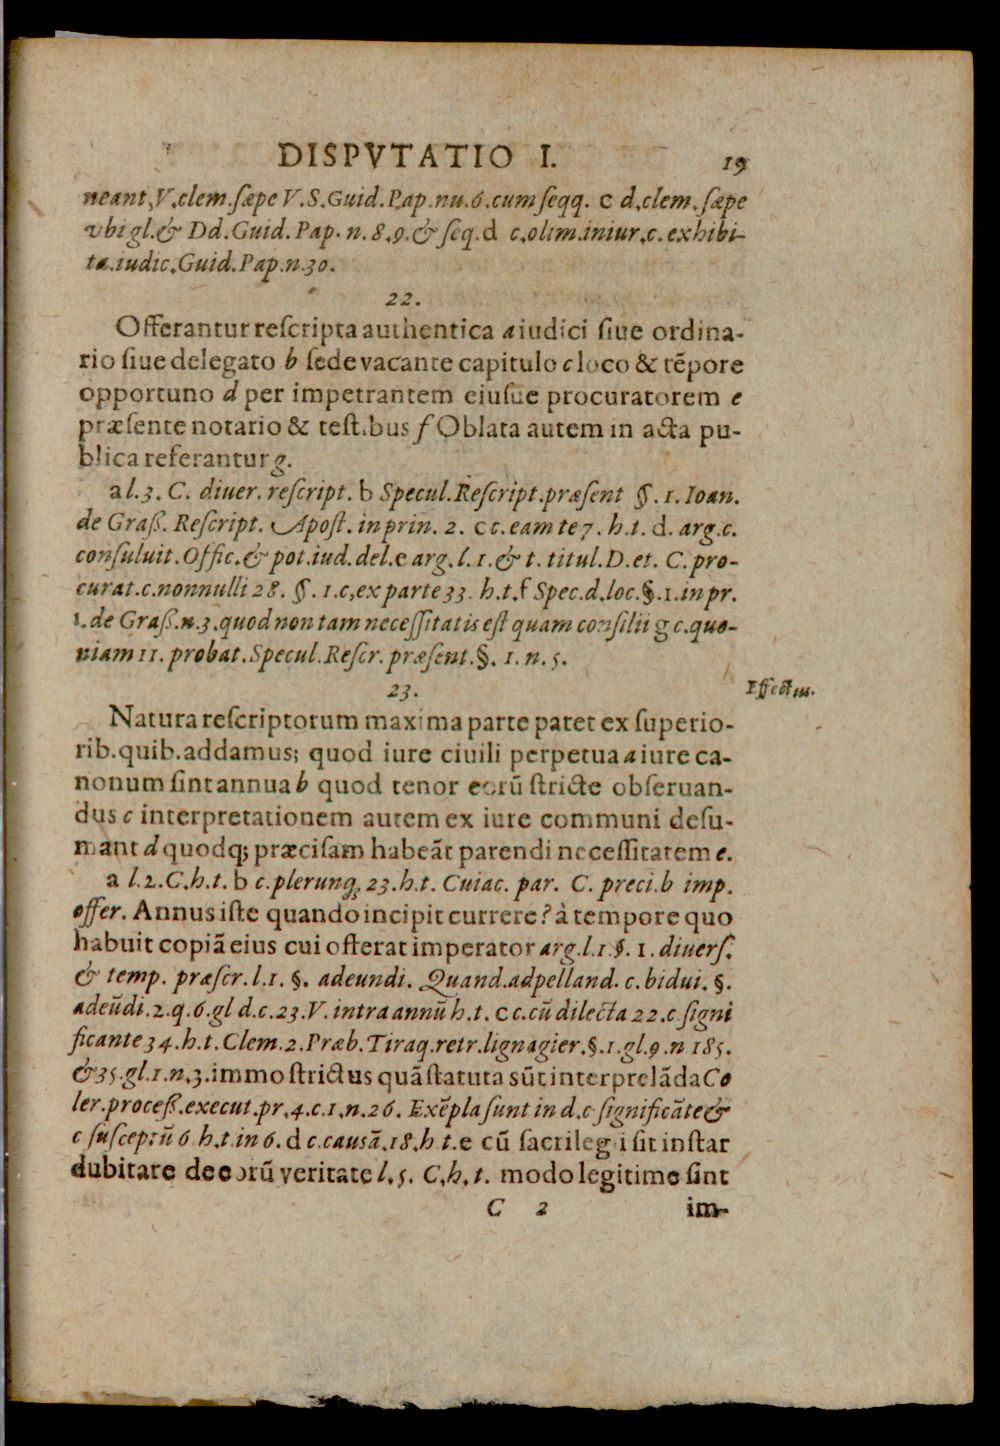 DISPVTATIO I. 19
neant, V. clem. ſæpe V. S. Guid. Pap. nu. 6. cum ſeqq. c d. clem. ſæpe
vbi gl. & Dd. Guid. Pap. n. 8. 9. & ſeq. d c. olim. iniur. c. exhibi-
ta. iudic. Guid. Pap. n. 30.
22.
Offerantur reſcripta authentica a iudici ſiue ordina-
rio ſiue delegato b ſede vacante capitulo c loco & tēpore
opportuno d per impetrantem eiuſue procuratorem e
præſente notario & teſtibus f Oblata autem in acta pu-
blica referantur g.
a l. 3. C. diuer. reſcript. b Specul. Reſcript. præſent §. 1. Ioan.
de Graß. Reſcript. Apoſt. in prin. 2. c c. eam te 7. h. t. d. arg. c.
conſuluit. Offic. & pot. iud. del. e arg. l. 1. & t. titul. D. et. C. pro-
curat. c. nonnulli 28. §. 1. c, ex parte 33. h. t. f Spec. d. loc. §. 1. in pr.
1. de Graß. n. 3. quod non tam neceſſitatis eſt quam conſilii g c. quo-
niam 11. probat. Specul. Reſcr. præſent. §. 1. n. 5.
23. Effectus.
Natura reſcriptorum maxima parte patet ex ſuperio-
rib. quib. addamus; quod iure ciuili perpetua a iure ca-
nonum ſint annua b quod tenor eorū ſtricte obſeruan-
dus c interpretationem autem ex iure communi deſu-
mant d quodq; præciſam habeāt parendi neceſſitatem e.
a l. 2. C. h. t. b c. plerunq; 23. h. t. Cuiac. par. C. preci. b imp.
offer. Annus iſte quando incipit currere? à tempore quo
habuit copiā eius cui offerat imperator arg. l. 1 §. 1. diuerſ.
& temp. præſcr. l. 1. §. adeundi. Quand. adpelland. c. bidui. §.
adeūdi. 2. q. 6. gl d. c. 23. V. intra annū h. t. c c. cū dilecta 22. c. ſigni
ficante 34. h. t. Clem. 2. Præb. Tiraq. retr. lignagier. §. 1. gl. 9. n 185.
& 35. gl. 1. n. 3. immo ſtrictus quā ſtatuta sūt interprelāda Co
ler. proceß. execut. pr. 4. c. 1. n. 26. Exēpla ſunt in d. c ſignificāte &
c ſuſceptū 6 h. t. in 6. d c. causā. 18. h. t. e cū ſacrilegii ſit inſtar
dubitare de eorū veritate l. 5. C. h. t. modo legitime ſint
C 2 im-